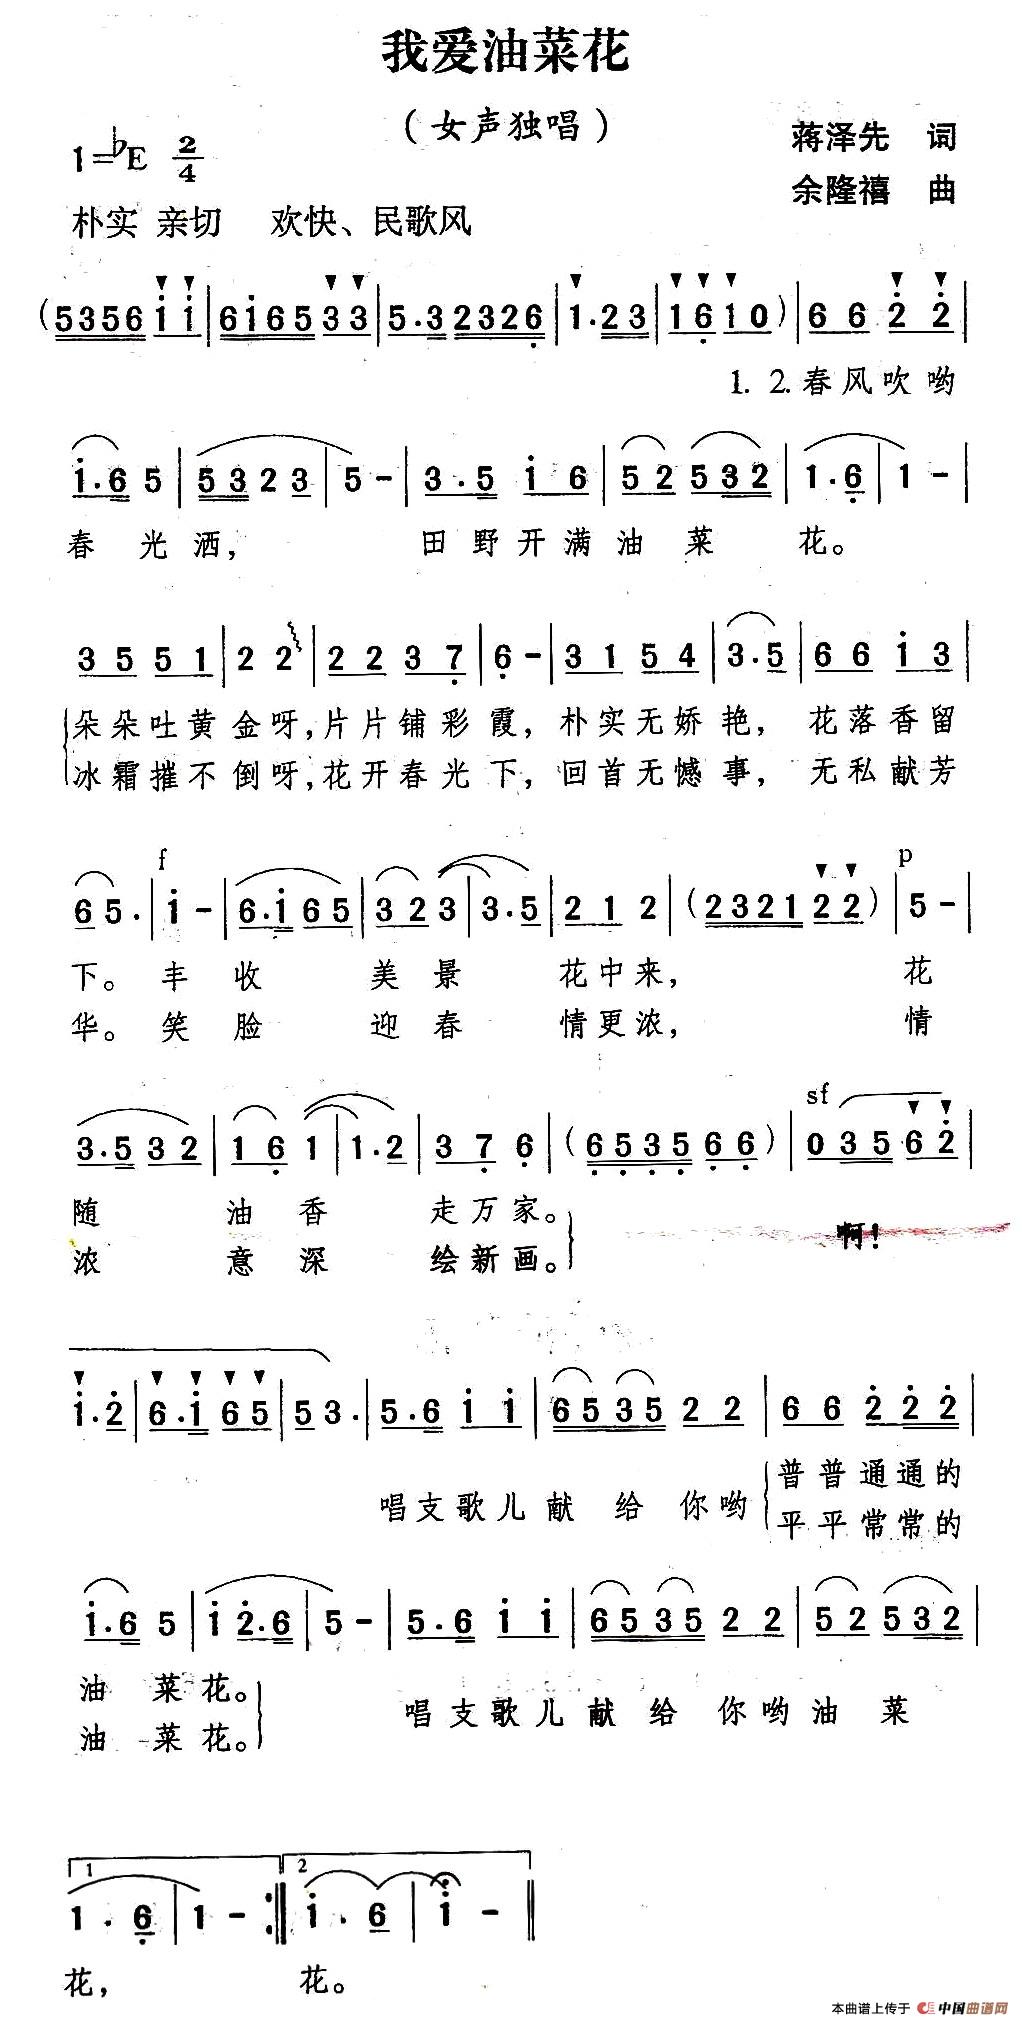 我爱油菜花
（女声独唱）
1=♭E 2/4
蒋泽先 词
余隆禧 曲
朴实 亲切 欢快、民歌风
(5356 i i | 6i65 3 3 | 5.3 2326 | 1.23 | 1610) | 6 6 2 2 |
1. 2. 春风吹哟
i.6 5 | 5323 | 5 - | 3.5 i 6 | 52 532 | 1.6 | 1 - |
春光洒， 田野开满油菜花。
3 5 5 1 | 2 2 | 2 2 3 7 | 6 - | 3 1 5 4 | 3.5 | 6 6 i 3 |
朵朵吐黄金呀，片片铺彩霞，朴实无娇艳，花落香留
冰霜摧不倒呀，花开春光下，回首无憾事，无私献芳
f p
6 5. | i - | 6.i 6 5 | 3 2 3 | 3.5 | 2 1 2 | (2321 2 2) | 5 - |
下。丰收美景花中来，花
华。笑脸迎春情更浓，情
sf
3.5 3 2 | 1 6 1 | 1.2 | 3 7 6 | (6535 6 6) | 0 3 5 6 2 |
随油香走万家。
浓意深绘新画。
啊！
i.2 | 6.i 6 5 | 5 3. | 5.6 i i | 6535 2 2 | 6 6 2 2 2 |
唱支歌儿献给你哟
普普通通的
平平常常的
i.6 5 | i 2.6 | 5 - | 5.6 i i | 6535 2 2 | 52 532 |
油菜花。
油菜花。
唱支歌儿献给你哟油菜
1 2
1.6 | 1 - :| i.6 | i - ||
花， 花。
本曲谱上传于 中国曲谱网